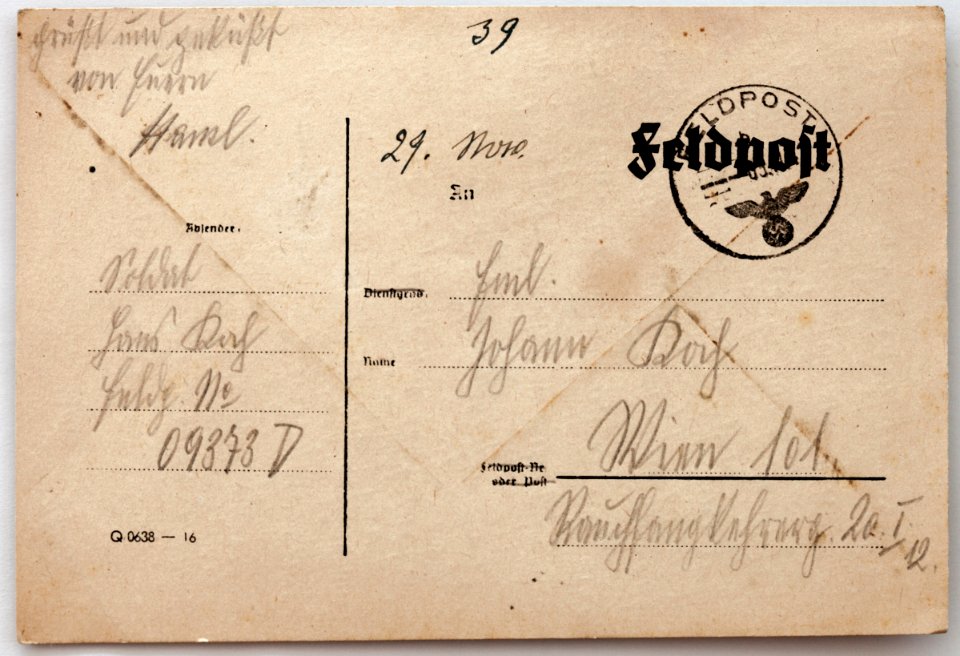 39
grüßt und geküßt
von Euern
Hansl.
29. Nov.
Feldpost
FELDPOST
An
Absender:
Soldat
Hans Koch
Feldp. No
09373 D
Dienstgrad:
Fml.
Name
Johann Koch
Wien 101
Feldpost-Nr
oder Post
Rauchfangkehrerg. 20. I/12.
Q 0638 — 16